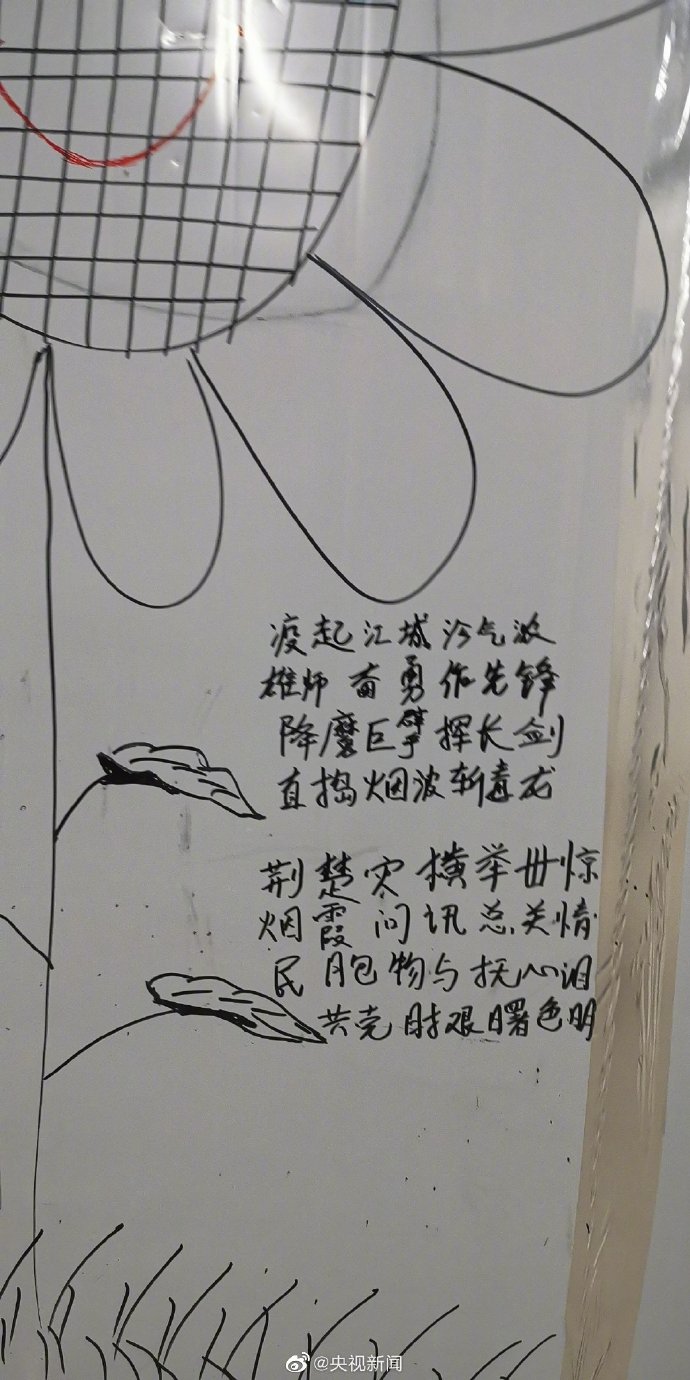 疫起江城沴气浓
雄师奋勇作先锋
降魔巨擘挥长剑
直捣烟波斩毒龙
荆楚灾横举世惊
烟霞问讯总关情
民胞物与抚心泪
共克时艰曙色明
@央视新闻